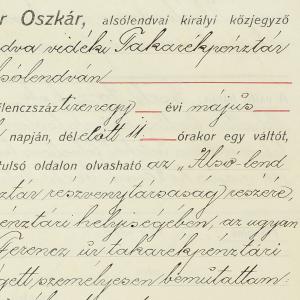 r Oszkár, alsólendvai királyi közjegyző
dva vidéki Takarékpénztár
sólendván
lenczszáz tizenegy évi május
napján, délelőtt 11 órakor egy váltót,
tulsó oldalon olvasható az „Alsó-lend
ztár részvénytársaság) részére,
énztári helyiségében, az ugyan
Ferencz úr takarékpénztári
gett személyesen bemutattam